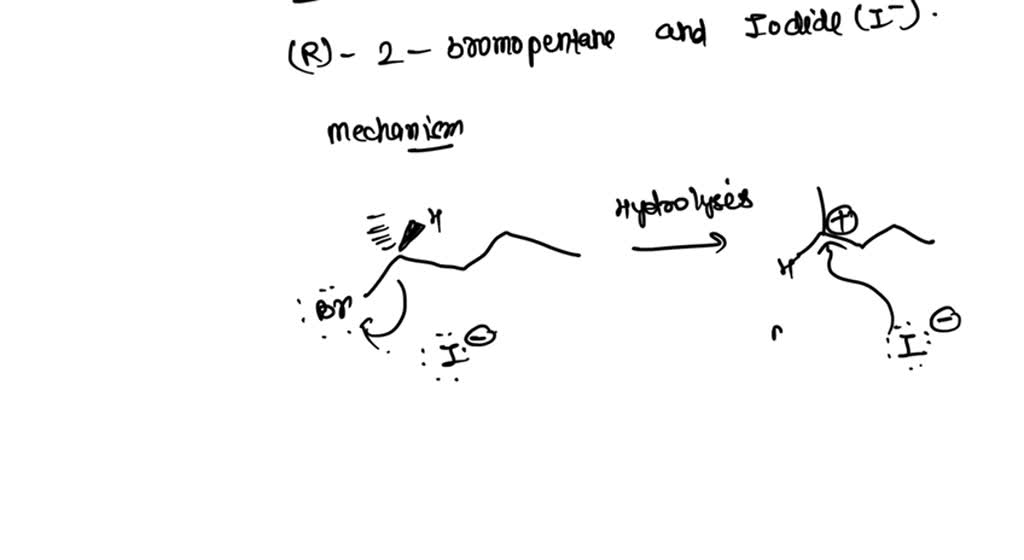 (R) - 2 - bromopentane and Iodide (I⁻).
mechanism
Hydrolysis
H
⊕
H
:Br
:I: ⊖
:I: ⊖